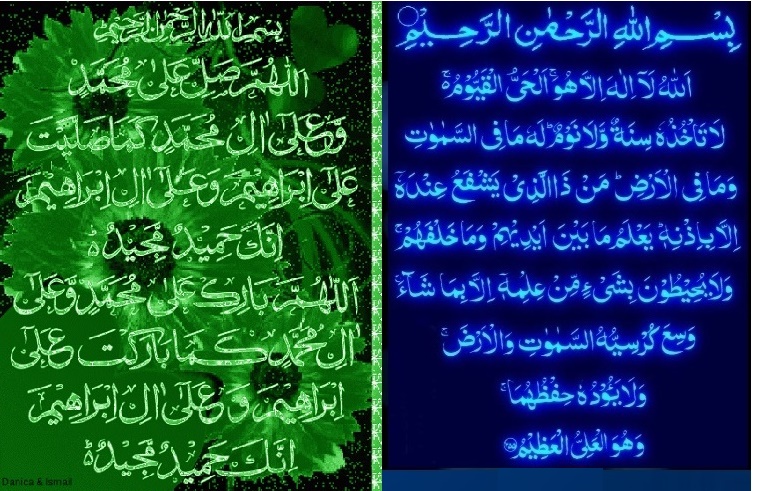 بسم الله الرحمن الرحيم
اللهم صل على محمد
وعلى ال محمد كما صليت
على ابراهيم وعلى ال ابراهيم
انك حميد مجيد
اللهم بارك على محمد وعلى
ال محمد كما باركت على
ابراهيم وعلى ال ابراهيم
انك حميد مجيد
Danica & Ismail
بِسْمِ اللهِ الرَّحْمٰنِ الرَّحِيْمِ
اَللهُ لَآ اِلٰهَ اِلَّا هُوَ ۚ اَلْحَىُّ الْقَيُّوْمُ ۚ
لَا تَاْخُذُهٗ سِنَةٌ وَّلَا نَوْمٌ ؕ لَهٗ مَا فِى السَّمٰوٰتِ
وَمَا فِى الْاَرْضِ ؕ مَنْ ذَا الَّذِىْ يَشْفَعُ عِنْدَهٗۤ
اِلَّا بِاِذْنِهٖ ؕ يَعْلَمُ مَا بَيْنَ اَيْدِيْهِمْ وَمَا خَلْفَهُمْ ۚ
وَلَا يُحِيْطُوْنَ بِشَىْءٍ مِّنْ عِلْمِهٖۤ اِلَّا بِمَا شَآءَ ۚ
وَسِعَ كُرْسِيُّهُ السَّمٰوٰتِ وَالْاَرْضَ ۚ
وَلَا يَؤُدُهٗ حِفْظُهُمَا ۚ
وَهُوَ الْعَلِىُّ الْعَظِيْمُ